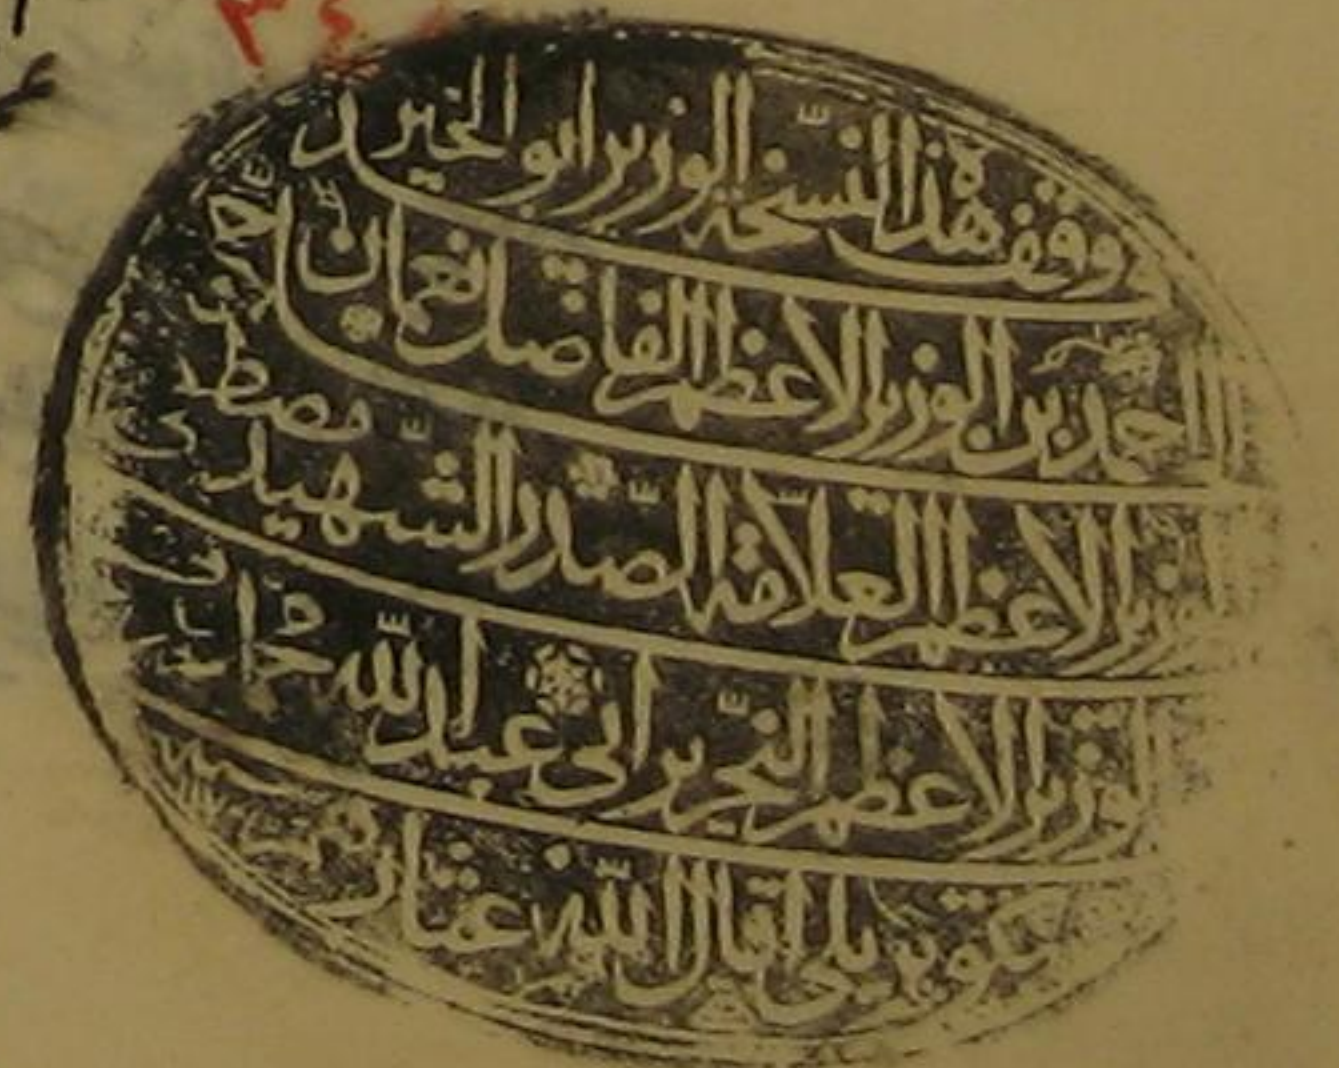 وقف هذه النسخة الوزير ابو الخير
احمد بن الوزير الاعظم الفاضل نعمان
الوزير الاعظم العلامة الصدر الشهيد مصطفى
الوزير الاعظم النحرير ابى عبد الله
كوپريلى اقال الله